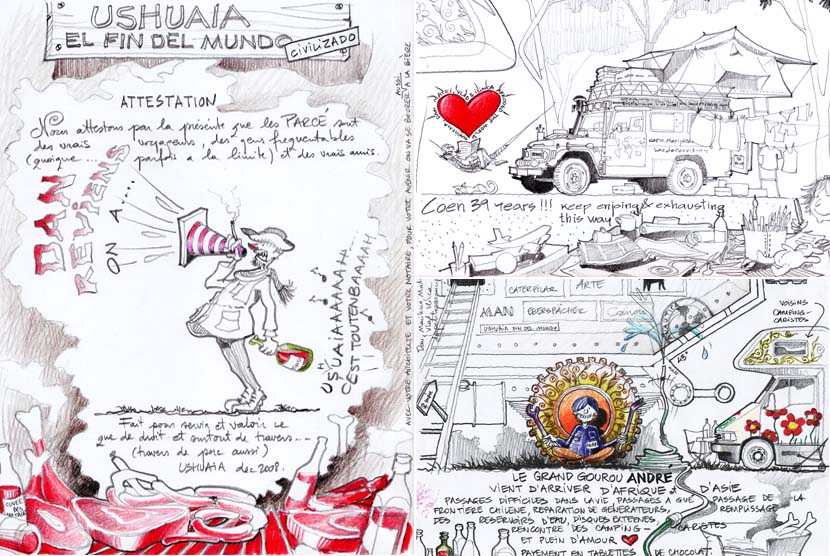 USHUAIA
EL FIN DEL MUNDO
CIVILIZADO
ATTESTATION
Nous attestons par la présente que les PARCÉ sont
des vrais voyageurs, des gens frequentables
(quoique... parfois a la limite) et des vrais amis.
DAN
REVIENS
ON A ....
USHUAIAAAAAAAHH
C'EST TOUTENBAAAAHH
Fait pour servir et valoir ce
que de droit et surtout de travers...
(travers de porc aussi)
USHUAIA dec 2008.
CUVEE
AVEC VOTRE ARCHITECTE ET VOTRE NOTAIRE, POUR VOTRE AVENIR ON VA SE BOURRER A LA BIÈRE
AUSSI
Coen 39 years !!! keep enjoing & exhausting
this way
CATERPILAR
ARTE
MAN
EBERSPÄCHER
USHUAIA FIN DEL MUNDO
45°
VOISINS
CAMPING-
CARISTES
LE GRAND GOUROU ANDRE
VIENT D'ARRIVER D'AFRIQUE & D'ASIE
PASSAGES DIFFICILES DANS LA VIE, PASSAGES A QUE PASSAGE DE LA
FRONTIERE CHILENE, REPARATION DE GÉNERATEURS, REMPLISSAGE
DES RESERVOIRS D'EAU, DISQUES EXTERNES,
RENCONTRE DES CAMPING-CARISTES
ET PLEIN D'AMOUR
PAYEMENT EN TABLETTES DE CHOCOLAT